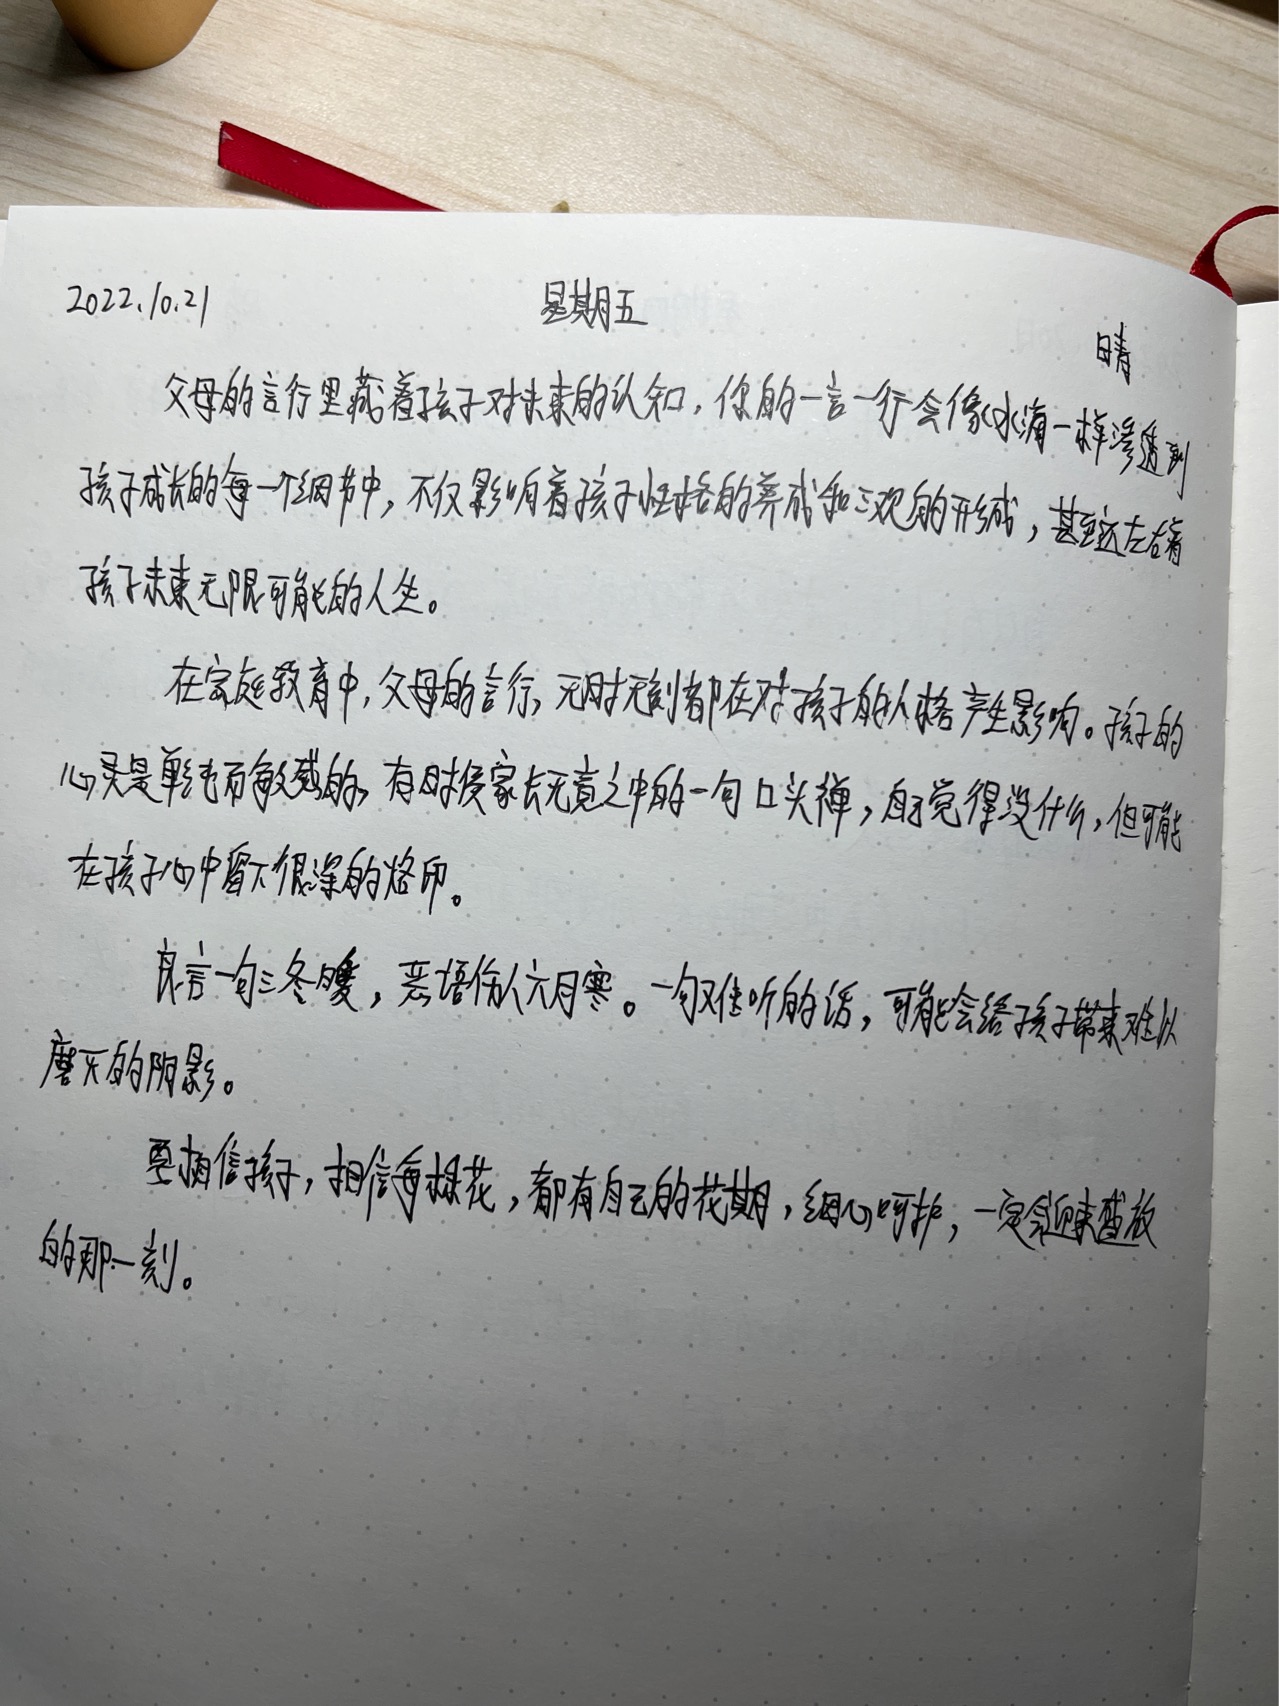 2022.10.21
星期五
晴
父母的言行里藏着孩子对未来的认知，你的一言一行会像水滴一样渗透到
孩子成长的每一个细节中，不仅影响着孩子性格的养成和三观的形成，甚至还左右着
孩子未来无限可能的人生。
在家庭教育中，父母的言行，无时无刻都在对孩子的人格产生影响。孩子的
心灵是单纯而敏感的，有时候家长无意之中的一句口头禅，自己觉得没什么，但可能
在孩子心中留下很深的烙印。
良言一句三冬暖，恶语伤人六月寒。一句难听的话，可能会给孩子带来难以
磨灭的阴影。
要相信孩子，相信每棵花，都有自己的花期，细心呵护，一定会迎来盛放
的那一刻。